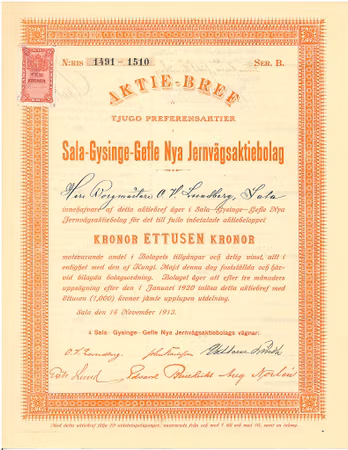 N:RIS 1491 - 1510 SER. B.
AKTIE-BREF
Å
TJUGO PREFERENSAKTIER
I
Sala-Gysinge-Gefle Nya Jernvägsaktiebolag
Herr Borgmästare O. V. Lundberg, Sala
innehafvare af detta aktiebref äger i Sala-Gysinge-Gefle Nya
Jernvägsaktiebolag för det till fullo inbetalade aktiebeloppet
KRONOR ETTUSEN KRONOR
motsvarande andel i Bolagets tillgångar och årlig vinst, allt i
enlighet med den af Kungl. Maj:t denna dag fastställda och här-
vid bilagda bolagsordning. Bolaget äger att efter tre månaders
uppsägning efter den 1 Januari 1920 inlösa detta aktiebref med
ettusen (1,000) kronor jämte upplupen utdelning.
Sala den 14 November 1913.
å Sala - Gysinge - Gefle Nya Jernvägsaktiebolags vägnar:
O. V. Lundberg
Lund Edvard Aug Norlin